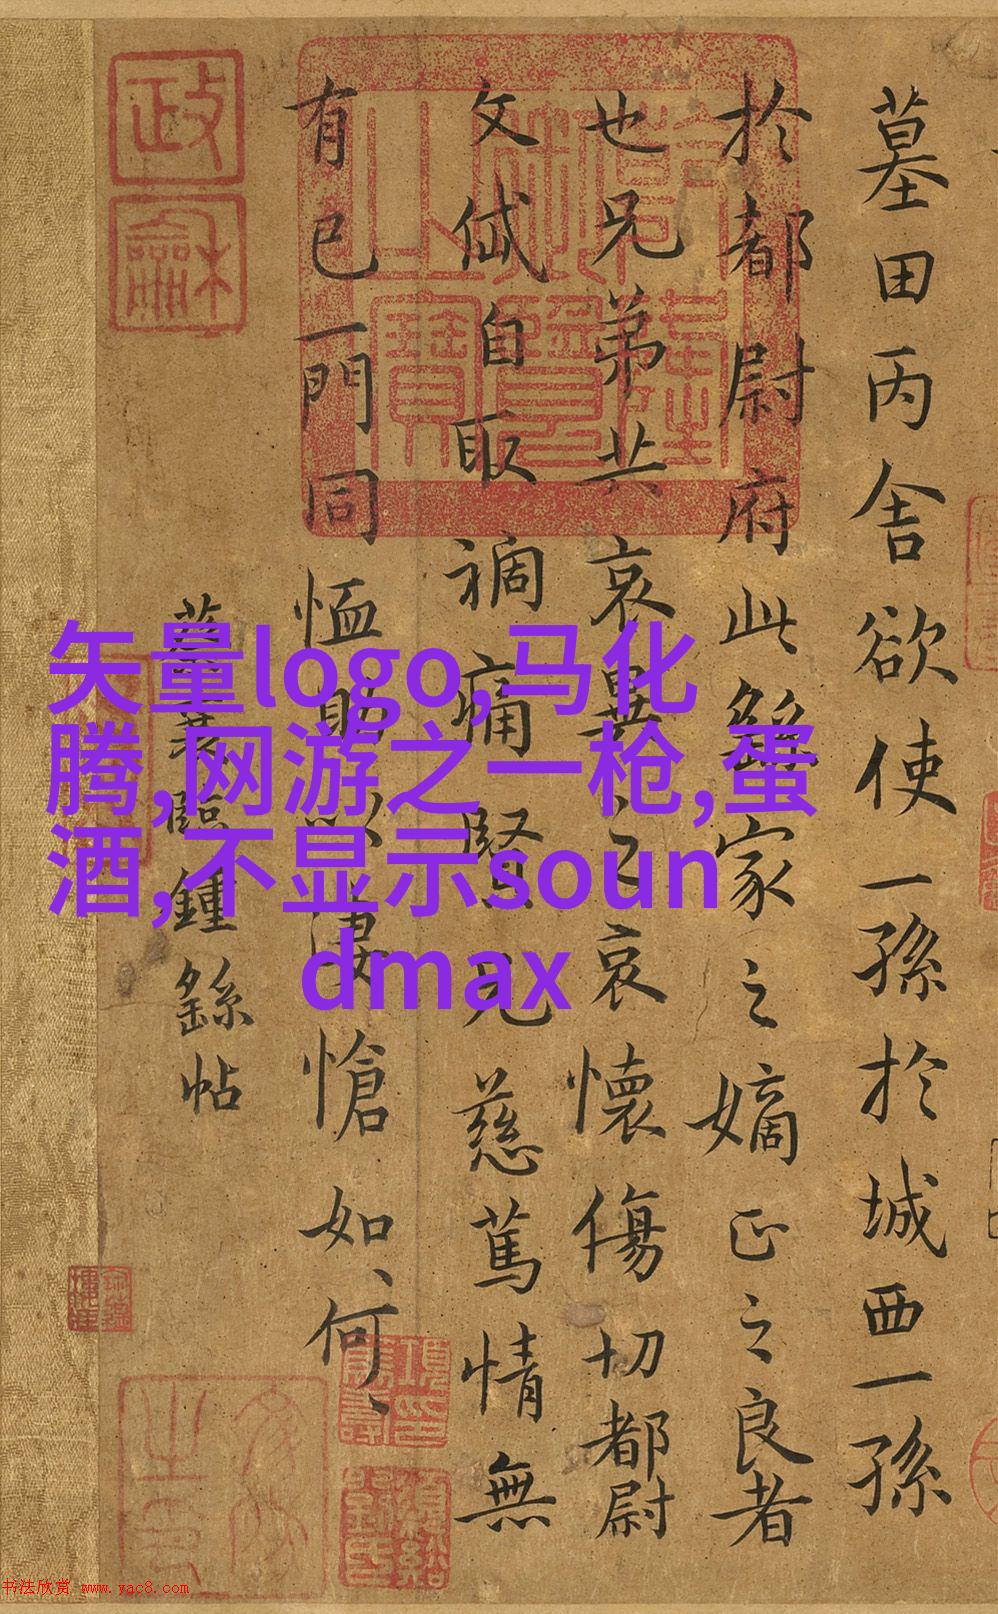 墓田丙舍欲使一孫於城西一孫
於都尉府此繇家之嫡正之良者
也兄弟共哀異之哀懷傷切都尉
文岱自取禍痛賢兄慈篤情無
有已一門同恤助以悽愴如、何、
臨鍾繇帖
政龢
矢量logo,马化
腾,网游之一枪,蛋
酒,不显示soun
dmax
书法欣赏 www.yac8.com